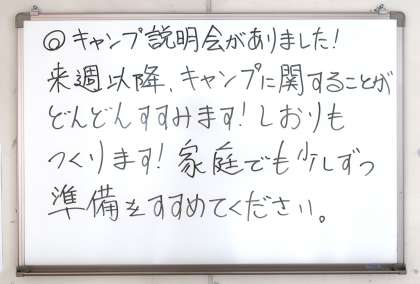 ◎キャンプ説明会がありました!
来週以降、キャンプに関することが
どんどんすすみます!しおりも
つくります!家庭でも少しずつ
準備をすすめてください。